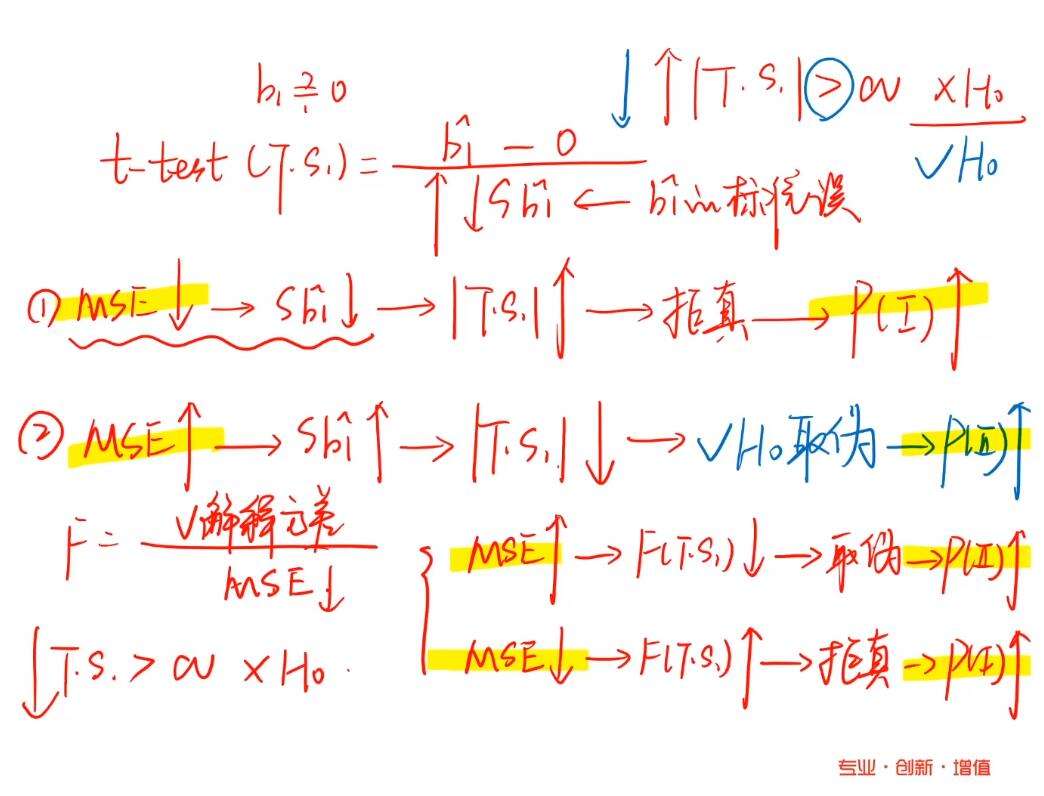 b₁ ≟ 0
↓ ↑ |T.S.| > CV ×H₀
√H₀
t-test (T.S.) = (b̂₁ − 0) / (↑↓ Sb̂₁) ← b̂₁的标准误
① MSE↓ → Sb̂₁↓ → |T.S.|↑ → 拒真 → P(I)↑
② MSE↑ → Sb̂₁↑ → |T.S.|↓ → √H₀取伪 → P(II)↑
F = √解释方差 / MSE↓
MSE↑ → F(T.S.)↓ → 取伪 → P(II)↑
MSE↓ → F(T.S.)↑ → 拒真 → P(I)↑
↓T.S. > CV ×H₀.
专业·创新·增值